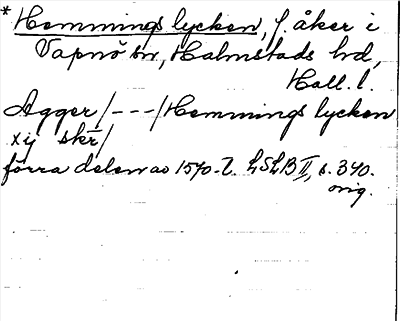 * Hemmings lycken, f. åker i
Vapnö sn, Halmstads hd,
Hall. l.
Agger /---/ Hemmings lycken
xij skr/
förra delen av 1570-t. LSLB II, s. 340.
orig.